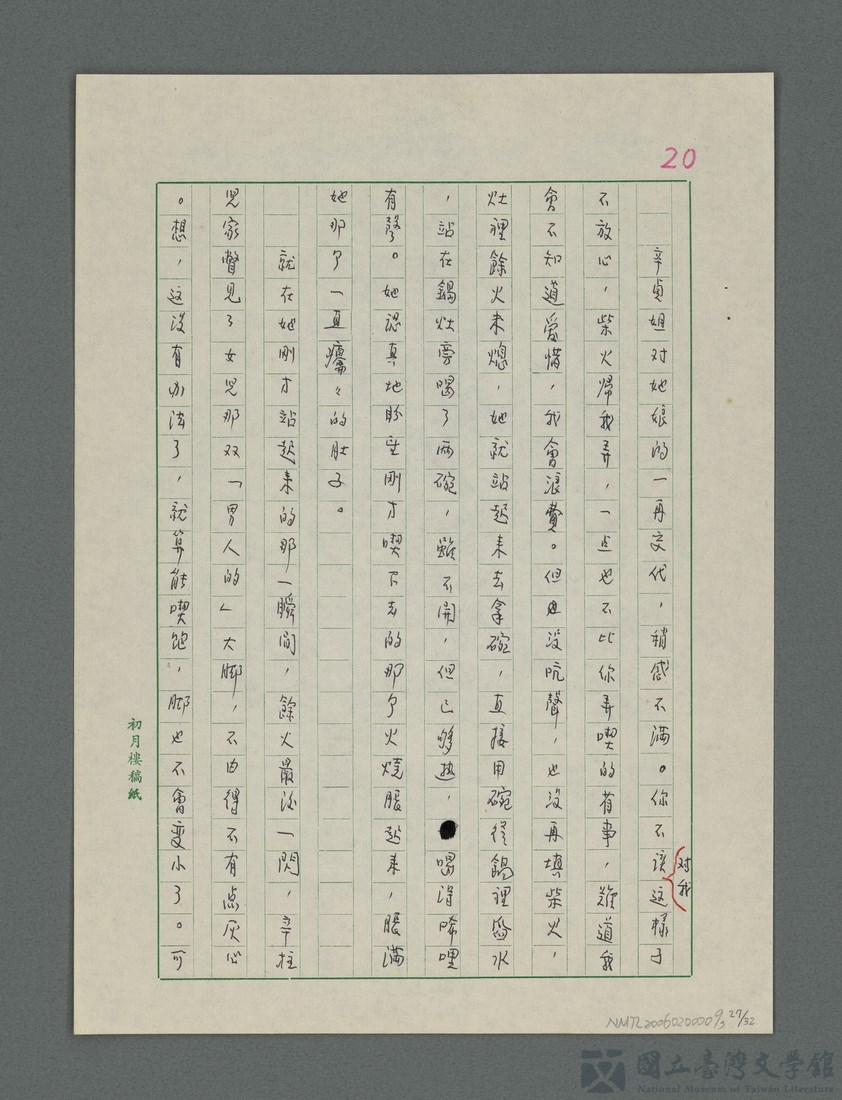 20
辛貞姐对她娘的一再交代，稍感不满。你不该这樣子
对我
不放心，柴火歸我弄，一点也不比你弄喫的省事，难道我
會不知道爱惜，我會浪費。但她没吭聲，也没再填柴火，
灶裡餘火未熄，她就站起来去拿碗，直接用碗從鍋裡舀水
，站在鍋灶旁喝了两碗，雖不開，但已够热，喝得唏哩
有聲。她認真地盼望刚才喫下去的那个火燒脹起来，脹满
她那个一直癟々的肚子。
就在她刚才站起来的那一瞬间，餘火最後一閃，辛拄
兒家瞥見了女兒那双「男人的」大脚，不由得不有点灰心
。想，这没有办法了，就算能喫饱，脚也不會变小了。可
初月樓稿紙
NMTL20060200009, 27/32
國立臺灣文學館
National Museum of Taiwan Literature